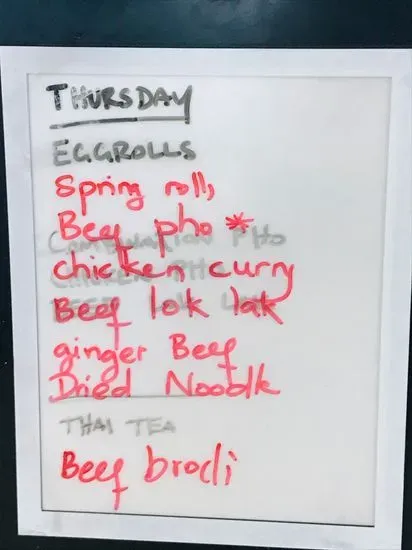 THURSDAY
EGGROLLS
Spring roll,
Beef pho *
COMBINATION PHO
chicken curry
CHICKEN PHO
Beef lok lak
ginger Beef
Dried Noodle
THAI TEA
Beef brocli